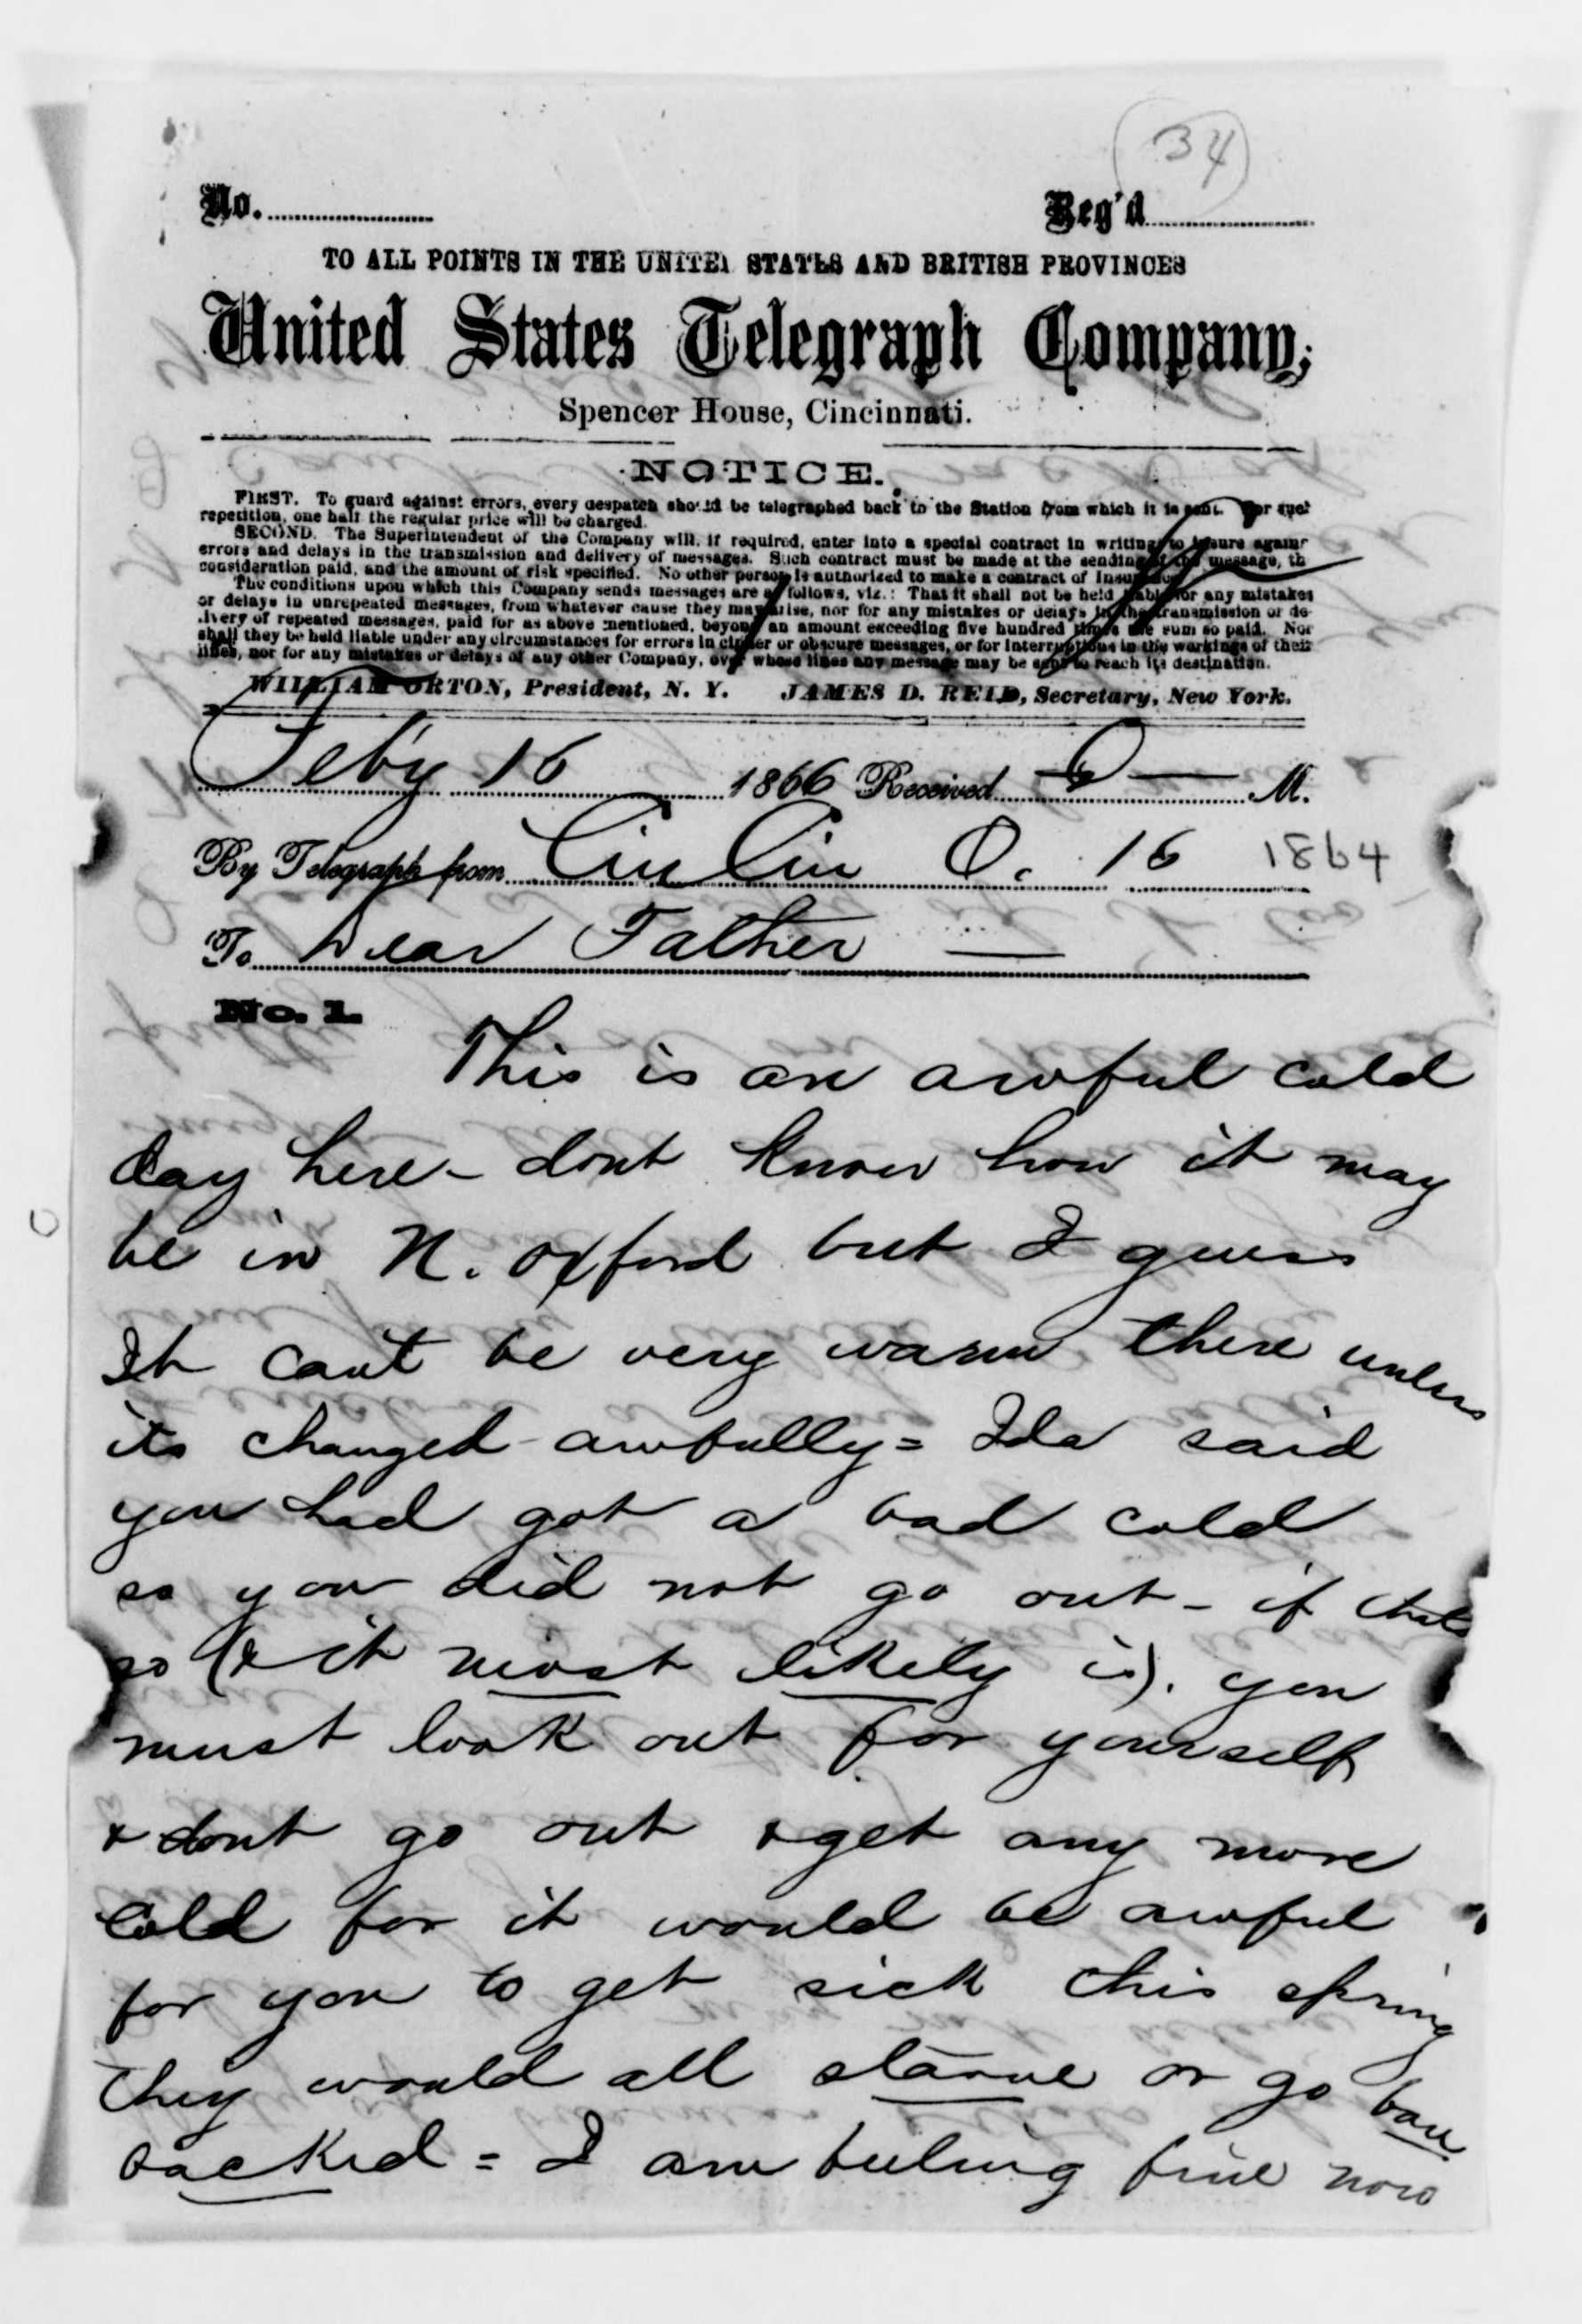 34
No. Reg'd
TO ALL POINTS IN THE UNITED STATES AND BRITISH PROVINCES
United States Telegraph Company,
Spencer House, Cincinnati.
NOTICE.
FIRST. To guard against errors, every despatch should be telegraphed back to the Station from which it is sent. For such
repetition, one half the regular price will be charged.
SECOND. The Superintendent of the Company will, if required, enter into a special contract in writing to insure against
errors and delays in the transmission and delivery of messages. Such contract must be made at the sending of the message, th
consideration paid, and the amount of risk specified. No other person is authorized to make a contract of Insurance.
The conditions upon which this Company sends messages are as follows, viz.: That it shall not be held liable for any mistakes
or delays in unrepeated messages, from whatever cause they may arise, nor for any mistakes or delays in the transmission or de-
livery of repeated messages, paid for as above mentioned, beyond an amount exceeding five hundred times the sum so paid. Nor
shall they be held liable under any circumstances for errors in cipher or obscure messages, or for interruptions in the workings of their
lines, nor for any mistakes or delays of any other Company, over whose lines any message may be sent to reach its destination.
WILLIAM ORTON, President, N. Y. JAMES D. REID, Secretary, New York.
Feby 16 1866 Received M.
By Telegraph from Cin Cin O. 16 1864
To Dear Father —
No. 1.
This is an awful cold
day here - dont know how it may
be in N. Oxford but I guess
It cant be very warm there unless
its changed awfully = Ida said
you had got a bad cold
so you did not go out - if thats
so (& it most likely is). you
must look out for yourself
& dont go out & get any more
Cold for it would be awful
for you to get sick this spring
They would all starve or go bare
backed = I am feeling fine now